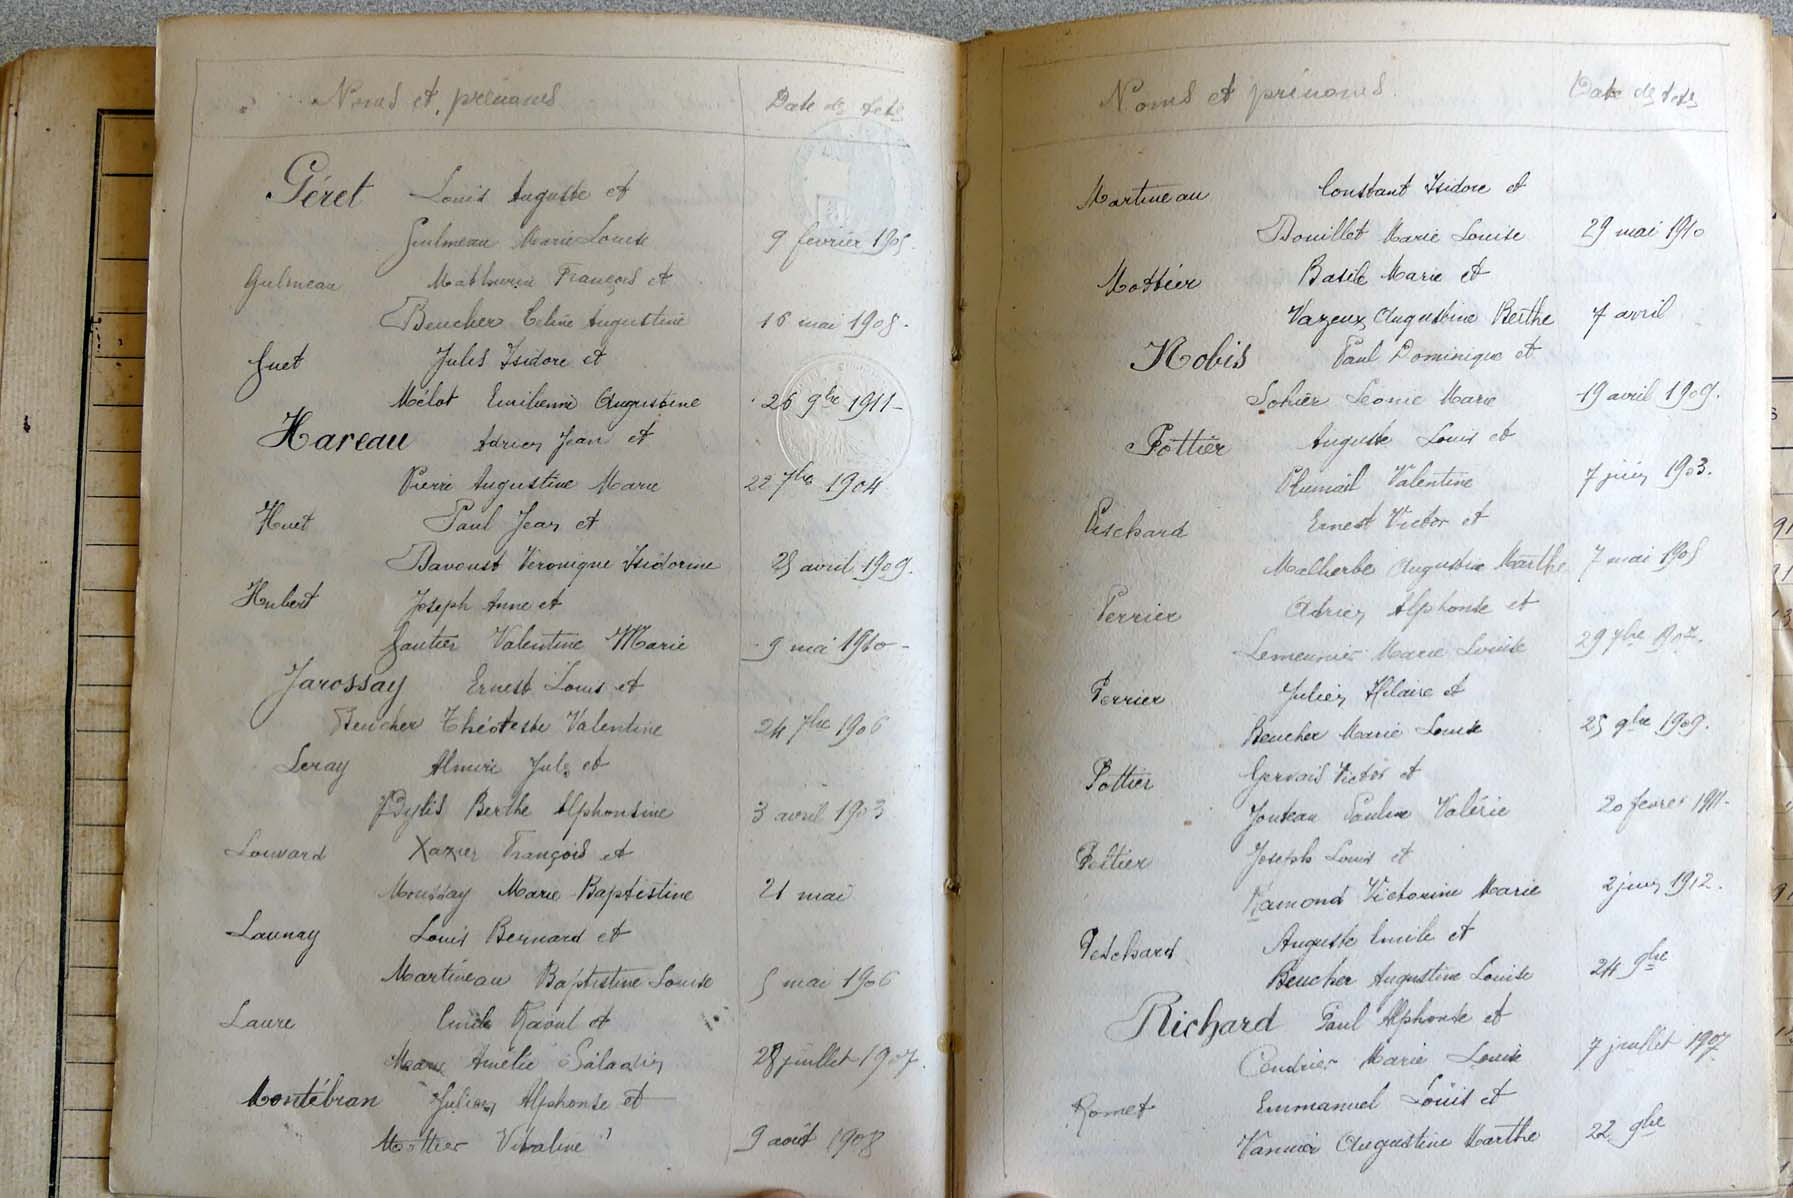 Noms et prénoms Date des Actes
Géret Louis Auguste et
Gulmeau Marie Louise 9 février 1905
Gulmeau Mathurin François et
Beucher Céline Augustine 16 mai 1908.
Guet Jules Isidore et
Mélot Emilienne Augustine 26 9bre 1911
Hareau Adrien Jean et
Pierre Augustine Marie 22 7bre 1904
Huet Paul Jean et
Davoust Véronique Isidorine 25 avril 1909.
Hubert Joseph Anne et
Gautier Valentine Marie 9 mai 1910
Jarossay Ernest Louis et
Beucher Théotiste Valentine 24 7bre 1906
Leray Almire Jules et
Berthe Alphonsine 3 avril 1903
Louvard Xavier François et
Moussay Marie Baptistine 21 mai
Launay Louis Bernard et
Martineau Baptistine Louise 5 mai 1906
Laure Emile Raoul et
Marie Amélie Saladin 28 juillet 1907.
Montébran Julien Alphonse et
Mottier Vitaline 9 août 1908
Noms et prénoms. Date des Actes
Martineau Constant Isidore et
Bouillet Marie Louise 29 mai 1910
Mottier Basile Marie et
Vazeux Augustine Berthe 7 avril
Nobis Paul Dominique et
Sohier Léonie Marie 19 avril 1909.
Pottier Auguste Louis et
Plumail Valentine 7 juin 1903.
Peschard Ernest Victor et
Malherbe Augustine Marthe 7 mai 1905
Perrier Adrien Alphonse et
Lemeunier Marie Louise 29 7bre 1907.
Perrier Julien Hilaire et
Beucher Marie Louise 25 9bre 1909.
Pottier Gervais Victor et
Jouteau Pauline Valérie 20 fevrer 1911
Pottier Joseph Louis et
Ramond Victorine Marie 2 juin 1912.
Peschard Auguste Emile et
Beucher Augustine Louise 24 9bre
Richard Paul Alphonse et
Coudrier Marie Louise 7 juillet 1907
Romet Emmanuel Louis et
Vannier Augustine Marthe 22 9bre